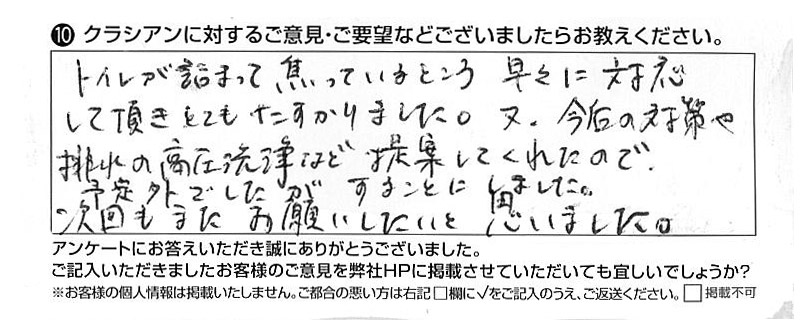 ⑩ クラシアンに対するご意見・ご要望などございましたらお教えください。
トイレが詰まって焦っているところ 早々に対応
して頂きとてもたすかりました。又、今后の対策や
排水の高圧洗浄など提案してくれたので、
予定外でしたが することにしました。
次回もまたお願いしたいと思いました。
アンケートにお答えいただき誠にありがとうございました。
ご記入いただきましたお客様のご意見を弊社HPに掲載させていただいても宜しいでしょうか?
※お客様の個人情報は掲載いたしません。ご都合の悪い方は右記□欄に√をご記入のうえ、ご返送ください。 □ 掲載不可